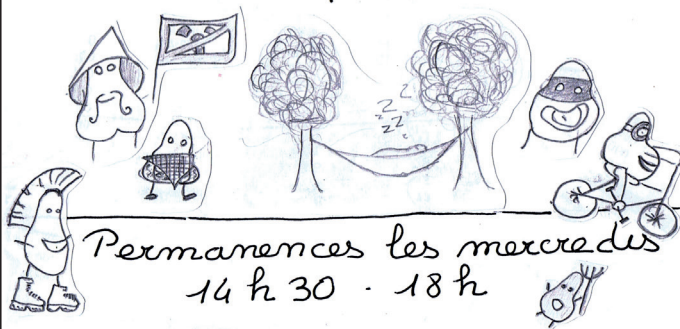 z
z
zz
Permanences les mercredis
14 h 30 - 18 h